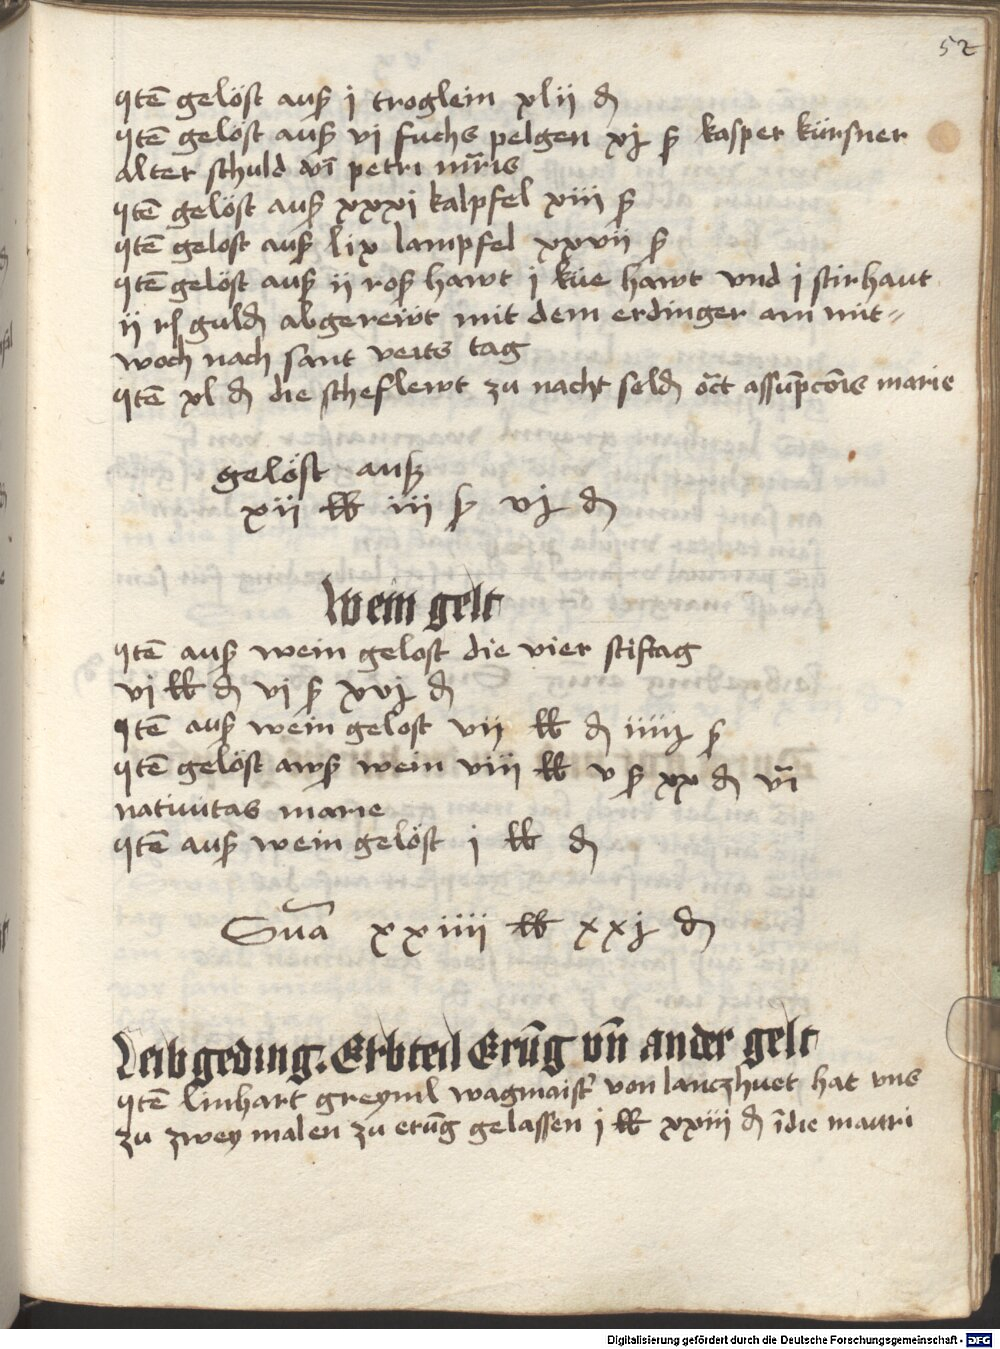 52
Itē gelöst auß j troglein xlij ₰
Itē gelöst auß vj fuchs pelgen xj ß kasper kürsner
alter schuld vī petri mr̄is
Itē gelöst auß xxxj kalpfel xiij ß
Itē gelost auß lix lampfel xxvij ß
Itē gelöst auß ij roß hawt j küe hawt vnd j stirhaut
ij rh guld̄ abgereiwt mit dem erdinger am mit=
woch nach sant veits tag
Itē xl ₰ die scheflewt zu nacht seld̄ oc̄t assūpcōis marie
gelöst auß
xij lb iij ß vj ₰
Wein gelt
Itē auß wein gelost die vier stiftag
vj lb ₰ vj ß xvj ₰
Itē auß wein gelost vij lb ₰ iiij ß
Itē gelöst awß wein viij lb v ß xx ₰ vī
natiuitas marie
Itē auß wein gelöst j lb ₰
Sūa xxiiij lb xxj ₰
Leibgeding. Erbteil Erūg vn̄ ander gelt
Itē linhart greyml wagmaistʼ von lanczhuet hat vns
zu zwey malen zu erūg gelassen j lb xxiij ₰ īdie mauri
Digitalisierung gefördert durch die Deutsche Forschungsgemeinschaft - DFG